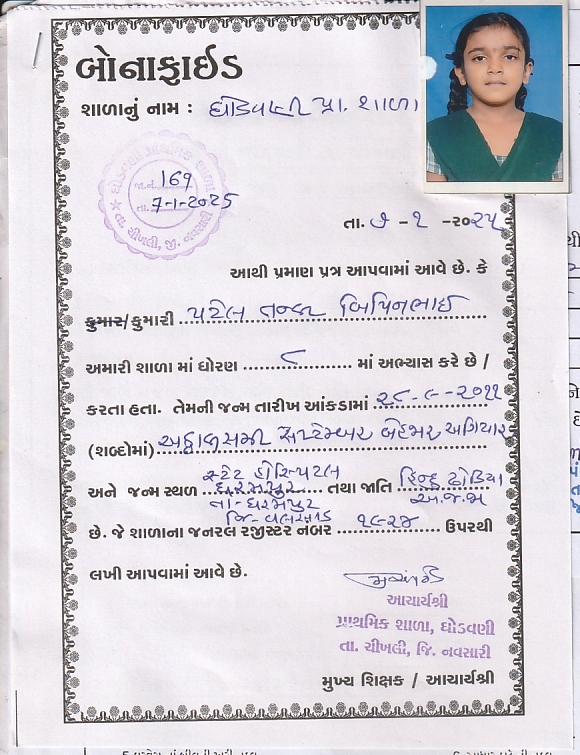 બોનાફાઈડ
શાળાનું નામ : ઘોડવણી પ્રા. શાળા
ઘોડવણી પ્રાથમિક શાળા
જા.નં. 169
તા. 7-1-2025
તા. ચીખલી, જી. નવસારી
તા. ૭ - ૧ - ૨૦૨૫
આથી પ્રમાણ પત્ર આપવામાં આવે છે. કે
કુમાર/કુમારી પટેલ બિપિનભાઈ
અમારી શાળા માં ધોરણ ૮ માં અભ્યાસ કરે છે /
કરતા હતા. તેમની જન્મ તારીખ આંકડામાં ૨૮-૯-૨૦૧૧
(શબ્દોમાં) અઠ્ઠાવીસમી સપ્ટેમ્બર બેહજાર અગિયાર
સ્ટેટ હોસ્પિટલ
અને જન્મ સ્થળ ધરમપુર તથા જાતિ હિન્દુ ઢોડિયા
તા-ધરમપુર અ.જ.જા
જિ-વલસાડ
છે. જે શાળાના જનરલ રજીસ્ટર નંબર ૧૯૨૪ ઉપરથી
લખી આપવામાં આવે છે.
આચાર્યશ્રી
પ્રાથમિક શાળા, ઘોડવણી
તા. ચીખલી, જિ. નવસારી
મુખ્ય શિક્ષક / આચાર્યશ્રી